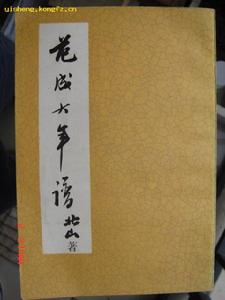 uisheng.kongfz.cn
范成大年谱
北山著